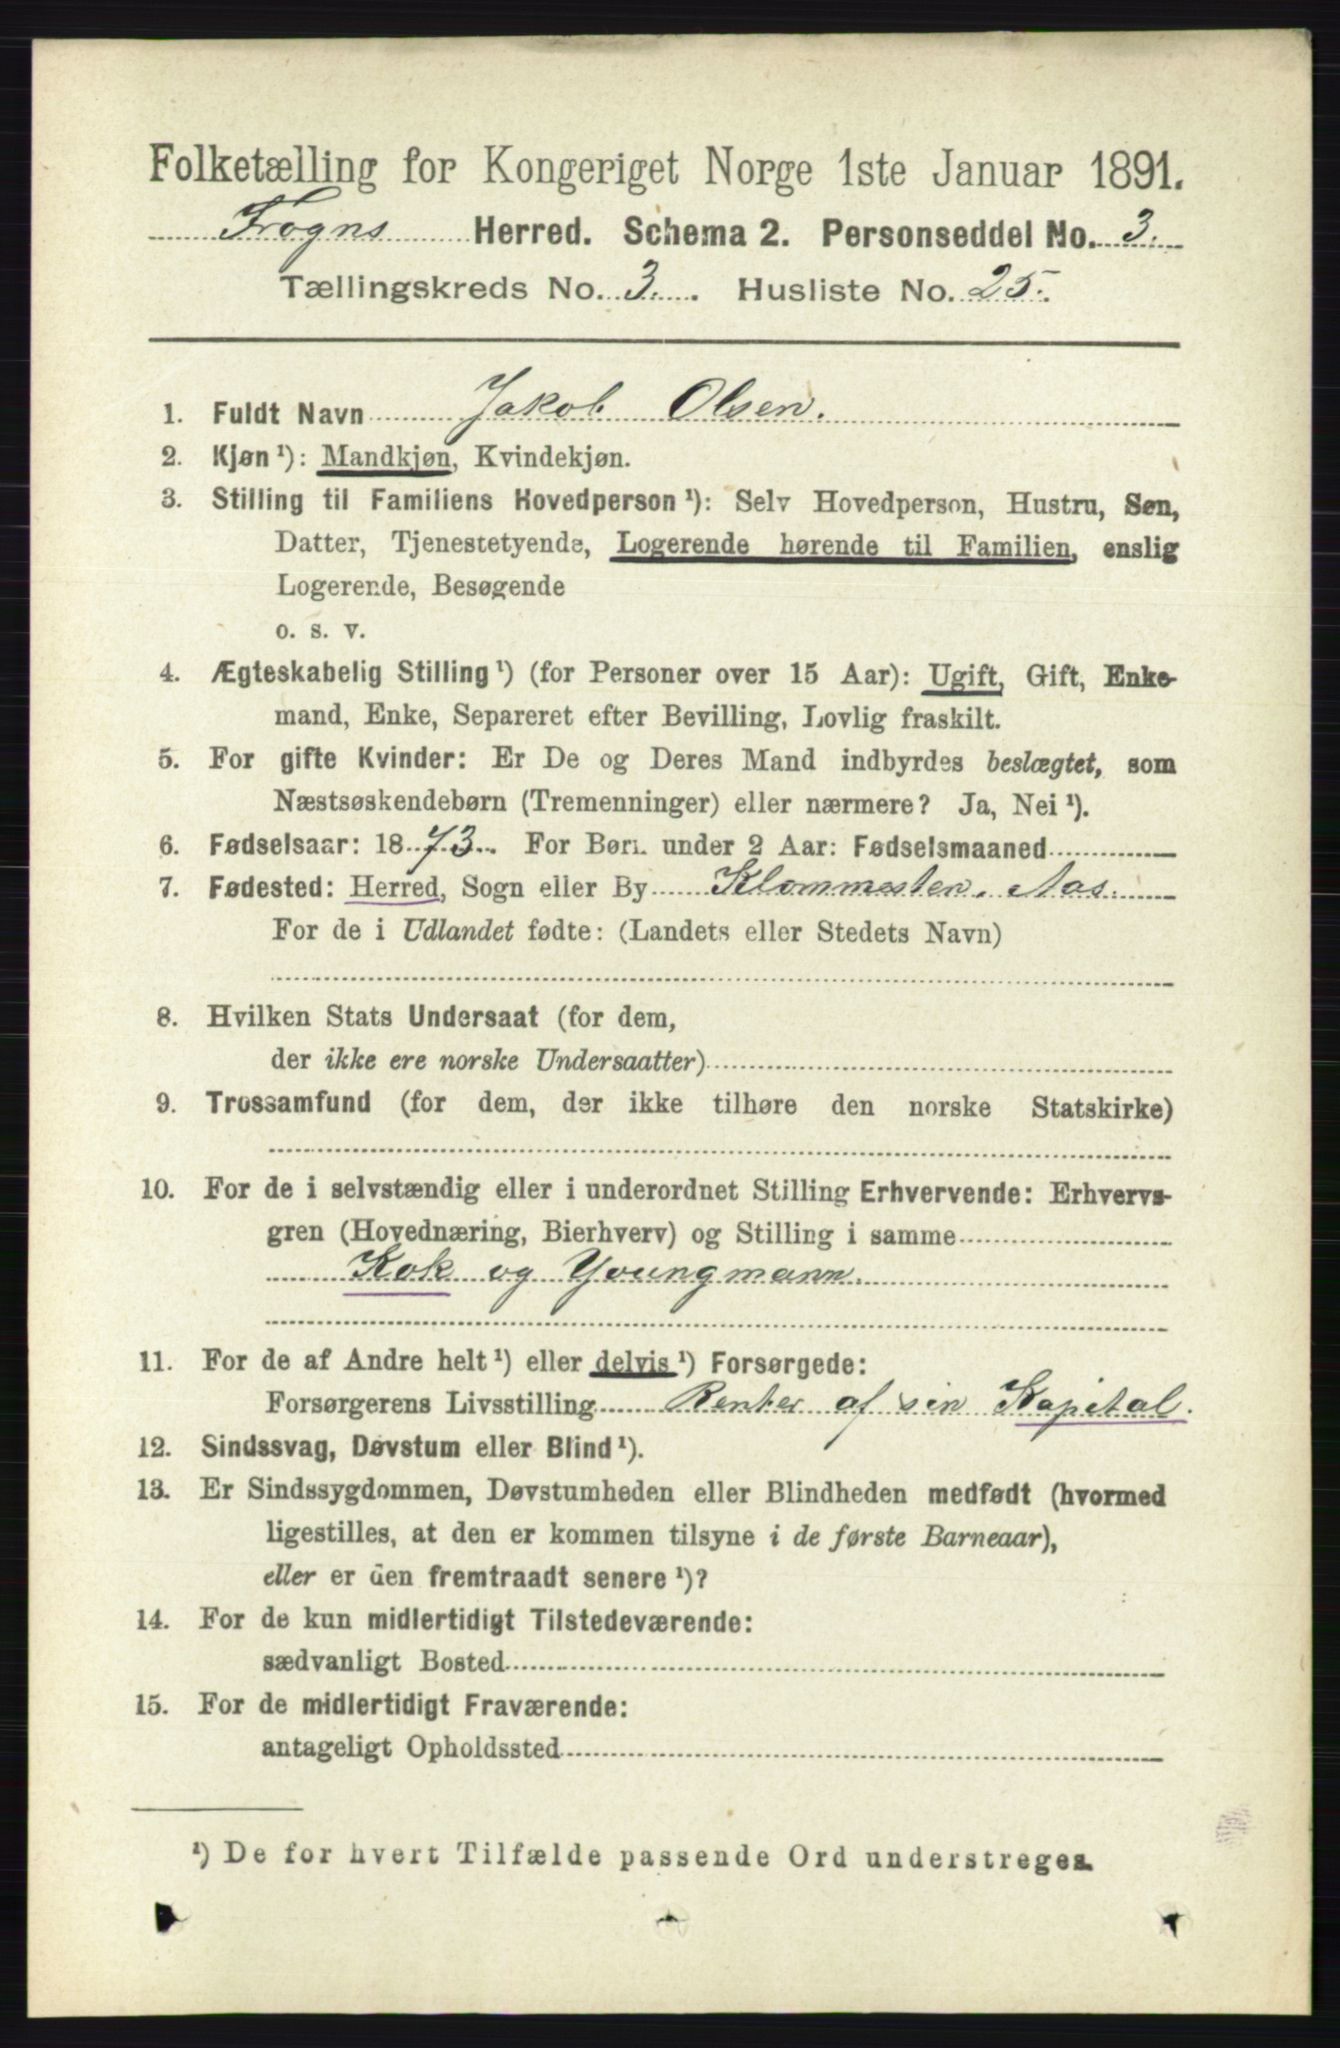 Folketælling for Kongeriget Norge 1ste Januar 1891.
Frogns Herred. Schema 2. Personseddel No. 3.
Tællingskreds No. 3. Husliste No. 25.
1. Fuldt Navn Jakob Olsen.
2. Kjøn¹): Mandkjøn, Kvindekjøn.
3. Stilling til Familiens Hovedperson¹): Selv Hovedperson, Hustru, Søn,
Datter, Tjenestetyende, Logerende hørende til Familien, enslig
Logerende, Besøgende
o. s. v.
4. Ægteskabelig Stilling¹) (for Personer over 15 Aar): Ugift, Gift, Enke-
mand, Enke, Separeret efter Bevilling, Lovlig fraskilt.
5. For gifte Kvinder: Er De og Deres Mand indbyrdes beslægtet, som
Næstsøskendebørn (Tremenninger) eller nærmere? Ja, Nei¹).
6. Fødselsaar: 1873. For Børn under 2 Aar: Fødselsmaaned
7. Fødested: Herred, Sogn eller By Klommesten. Aas.
For de i Udlandet fødte: (Landets eller Stedets Navn)
8. Hvilken Stats Undersaat (for dem,
der ikke ere norske Undersaatter)
9. Trossamfund (for dem, der ikke tilhøre den norske Statskirke)
10. For de i selvstændig eller i underordnet Stilling Erhvervende: Erhvervs-
gren (Hovednæring, Bierhverv) og Stilling i samme
Kok og Youngmann.
11. For de af Andre helt¹) eller delvis¹) Forsørgede:
Forsørgerens Livsstilling Renter af sin Kapital.
12. Sindssvag, Døvstum eller Blind¹).
13. Er Sindssygdommen, Døvstumheden eller Blindheden medfødt (hvormed
ligestilles, at den er kommen tilsyne i de første Barneaar),
eller er den fremtraadt senere¹)?
14. For de kun midlertidigt Tilstedeværende:
sædvanligt Bosted
15. For de midlertidigt Fraværende:
antageligt Opholdssted
¹) De for hvert Tilfælde passende Ord understreges.